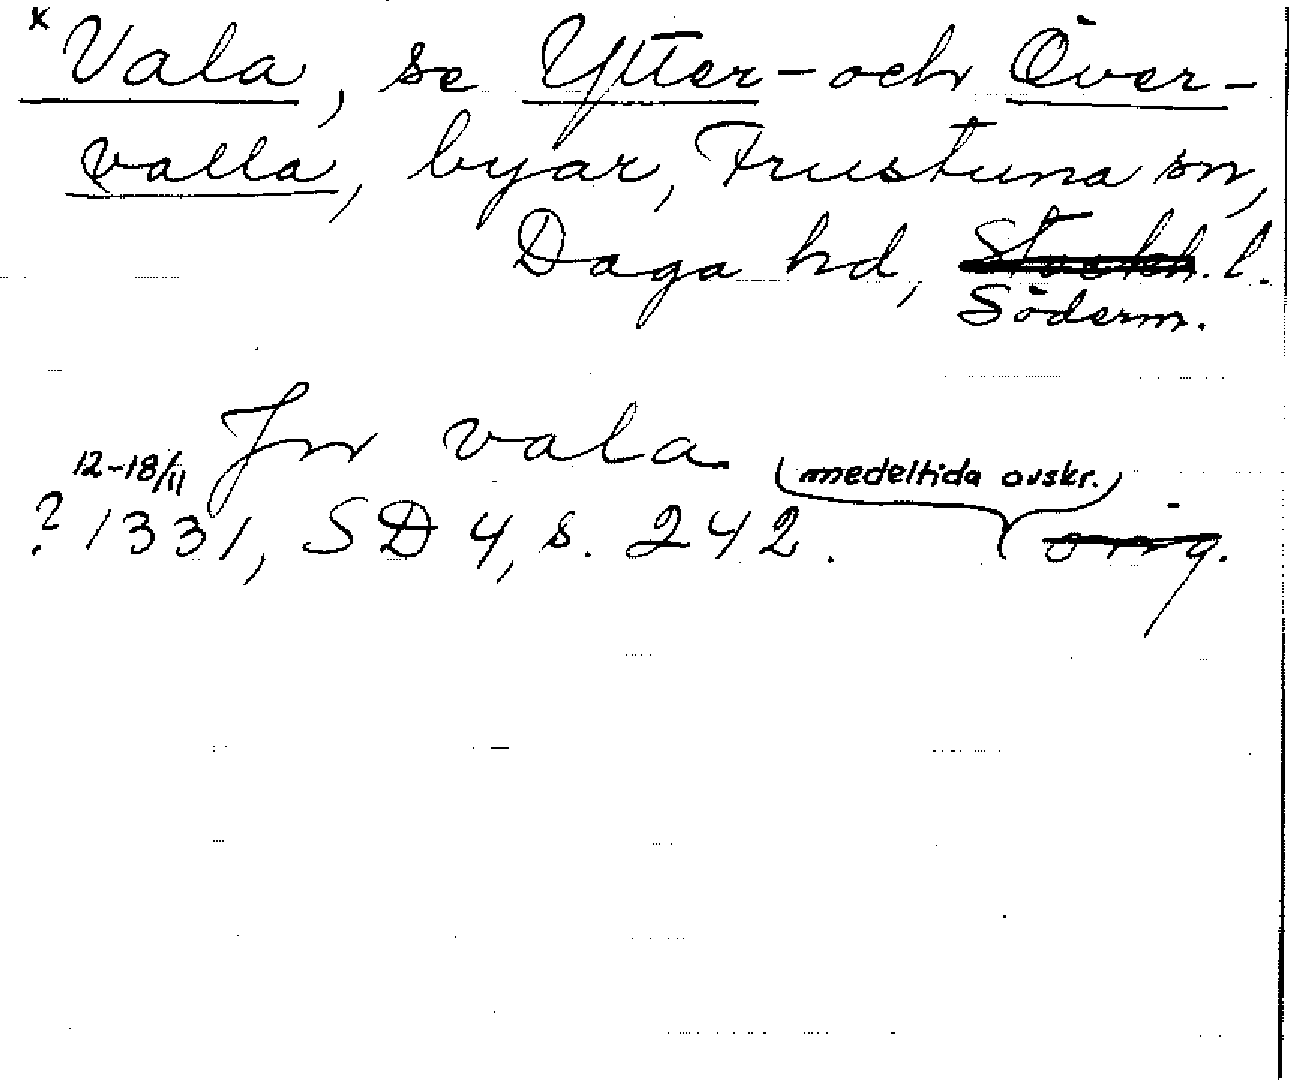 x Vala, se Ytter- och Över-
valla, byar, Frustuna sn,
Daga hd, Stockh. l.
Söderm.
Jn vala
12-18/11 medeltida avskr.
? 1331, SD 4, s. 242. orig.